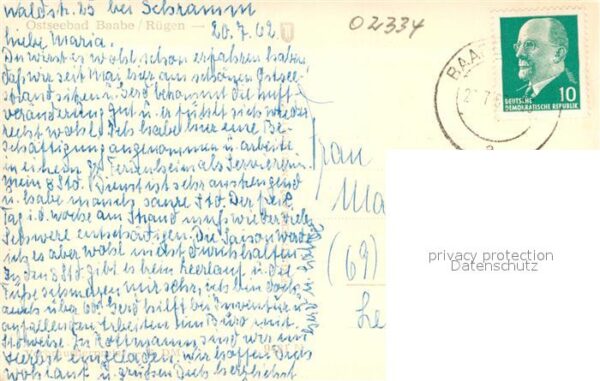 Waldstr. 25 bei Schramm
Ostseebad Baabe / Rügen -
20.7.62
02334
Liebe Maria.
Du wirst es wohl schon erfahren haben
daß wir seit Mai hier am schönen Ostsee-
strand sitzen u. Gerd bekommt die Luft-
veränderung gut u. er fühlt sich wieder
recht wohl. Ich habe hier eine Be-
schäftigung angenommen u. arbeite
in einem Ferienheim als Serviererin
mein 8 Std. Dienst ist sehr anstrengend
u. habe manch saure Std. Der freie
Tag i. d. Woche am Strand muß wieder vieles
Schwere entschädigen. Die Saison werde
ich es aber wohl nicht durchhalten
In den 8 Std gibt es kein Leerlauf u. die
Füße schmerzen mir sehr, ich bin doch
auch über 60. Gerd hilft bei Inventur u.
anfallenden Arbeiten im Büro mit.
sind wir im
Herbst eingeladen. Wir hoffen Dich
wohlauf u. grüßen Dich herzlichst
BAA
10
DEUTSCHE
DEMOKRATISCHE REPUBLIK
Frau
Ma
(69)
Le
privacy protection
Datenschutz